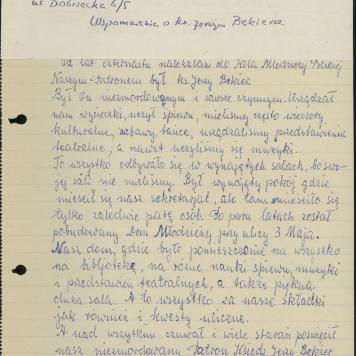 ul. Dobrzecka 6/5
Wspomnienia o ks. Jerzym Bekierze
od lat czternastu należałam do Koła Młodzieży Polskiej
Naszym Patronem był ks. Jerzy Bekier.
Był On niezmordowanym i zawsze czynnym. Urządzał
nam wycieczki, uczył śpiewu, mieliśmy często wieczory
kulturalne, zabawy, tańce, urządzaliśmy przedstawienia
teatralne, a nawet uczyliśmy się muzyki.
To wszystko odbywało się w wynajętych salach, bo swo-
jej sali nie mieliśmy. Był wynajęty pokój gdzie
mieścił się nasz sekretarjat, ale tam mieściło się
tylko zaledwie parę osób. Po paru latach został
pobudowany Dom Młodzieży przy ulicy 3 Maja.
Nasz dom, gdzie było pomieszczenie na wszystko
na bibljotekę, na różne nauki śpiewu, muzyki
i przedstawień teatralnych, a także piękna
duża sala. A to wszystko za nasze składki
jak również i kwesty uliczne.
A nad wszystkim czuwał i wiele starań poświęcił
nasz niezmordowany Patron Ksiądz Jerzy Bekier